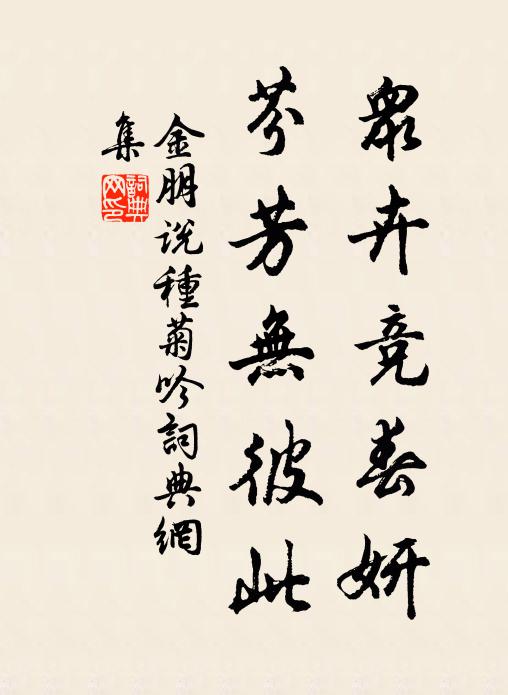 眾卉竞春妍
芬芳無彼此
金朋说種菊吟詞典網
集
詞典網印